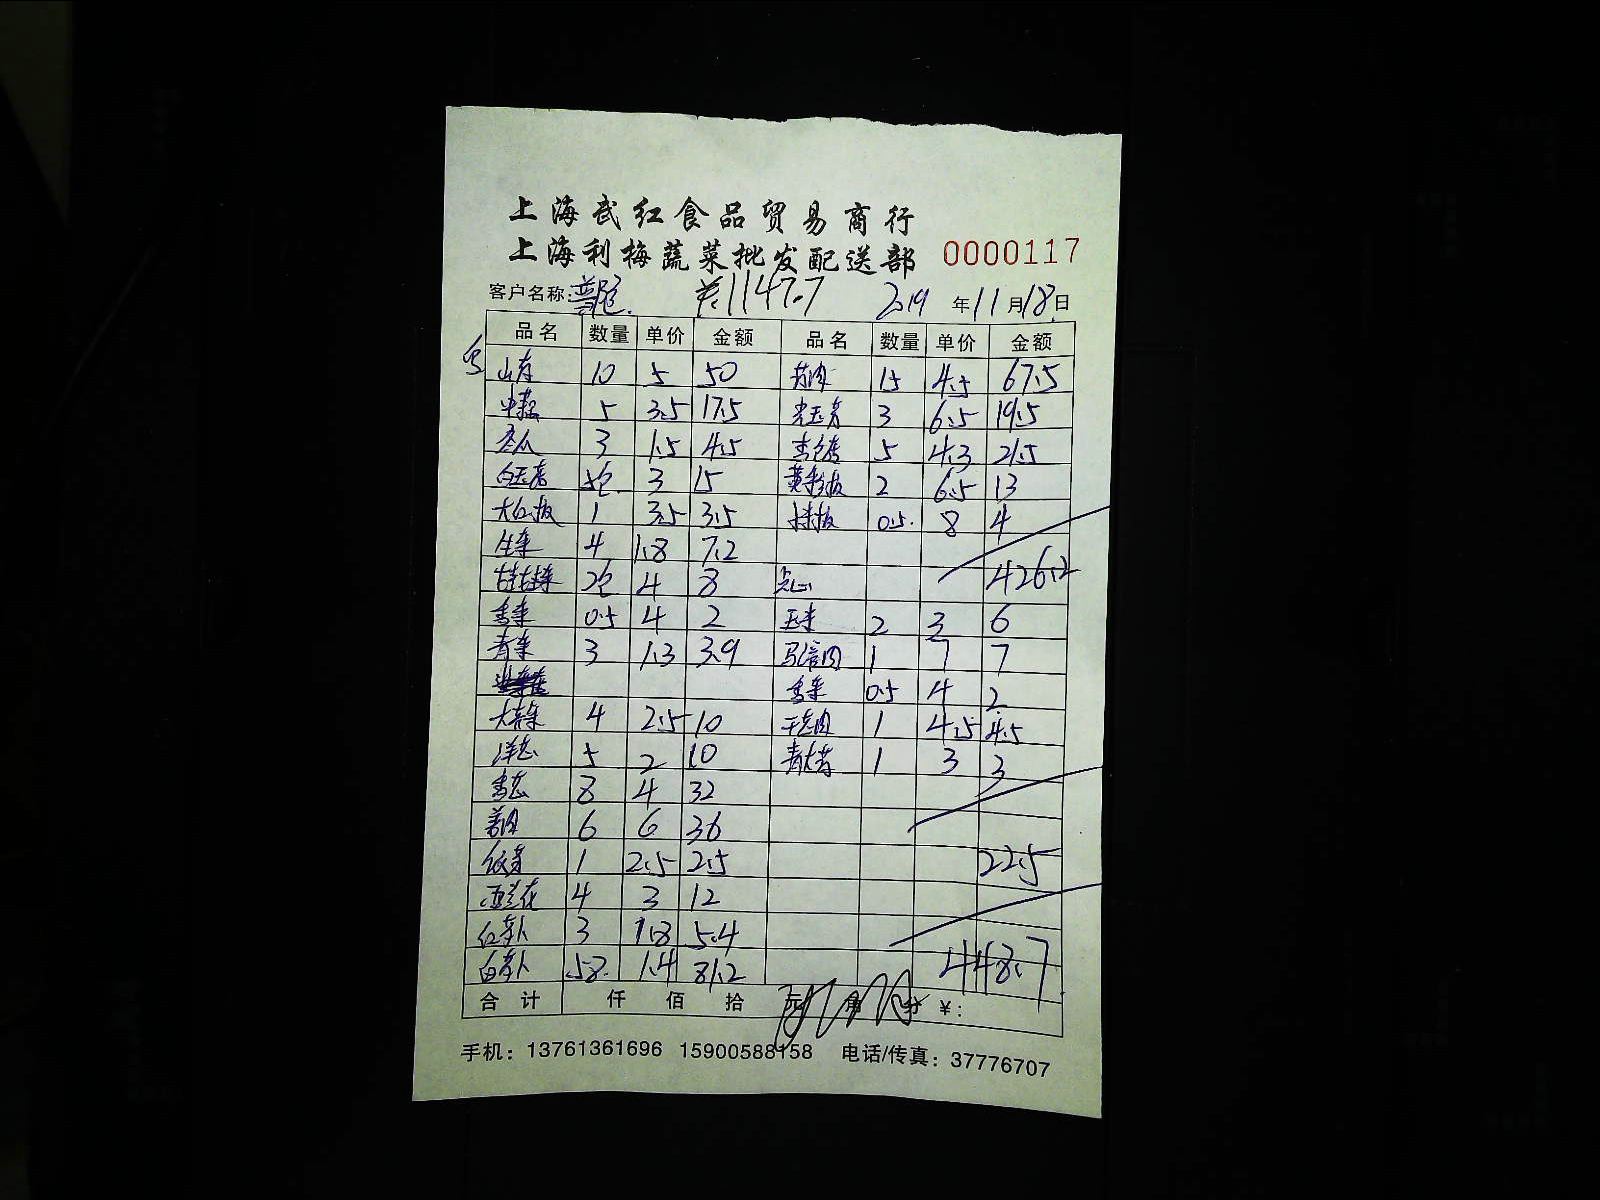 上海武红食品贸易商行
上海利梅蔬菜批发配送部 0000117
客户名称: 1147.7 2019 年 11 月 18 日
品名 数量 单价 金额 品名 数量 单价 金额
山药 10 5 50 15 4.5 67.5
5 3.5 17.5 3 6.5 19.5
3 1.5 4.5 5 4.3 21.5
白玉菇 5包 3 15 2 6.5 13
大红椒 1 3.5 3.5 0.5 8 4
生菜 4 1.8 7.2
2包 4 8 点心 426.2
香菜 0.5 4 2 玉米 2 3 6
青菜 3 1.3 3.9 1 7 7
香菜 0.5 4 2
大青菜 4 2.5 10 1 4.5 4.5
洋葱 5 2 10 1 3 3
香葱 8 4 32
姜肉 6 6 36
1 2.5 2.5 22.5
西兰花 4 3 12
红萝卜 3 1.8 5.4
白萝卜 58 1.4 81.2 448.7
合计 仟 佰 拾 元 角 分 ¥:
手机: 13761361696 15900588158 电话/传真: 37776707